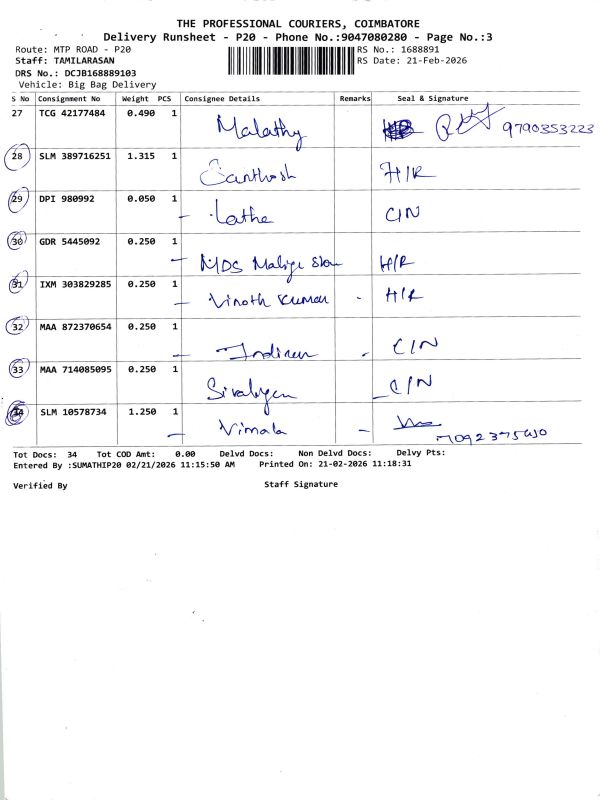 THE PROFESSIONAL COURIERS, COIMBATORE
Delivery Runsheet - P20 - Phone No.:9047080280 - Page No.:3
Route: MTP ROAD - P20 RS No.: 1688891
Staff: TAMILARASAN RS Date: 21-Feb-2026
DRS No.: DCJB168889103
Vehicle: Big Bag Delivery
S No Consignment No Weight PCS Consignee Details Remarks Seal & Signature
27 TCG 42177484 0.490 1 Malathy 9790353223
28 SLM 389716251 1.315 1 Santhosh H/R
29 DPI 980992 0.050 1 - Latha C/N
30 GDR 5445092 0.250 1 - MDS H/R
31 IXM 303829285 0.250 1 - Vinoth Kumar - H/R
32 MAA 872370654 0.250 1 - - C/N
33 MAA 714085095 0.250 1 C/N
34 SLM 10578734 1.250 1 - Vimala -
Tot Docs: 34 Tot COD Amt: 0.00 Delvd Docs: Non Delvd Docs: Delvy Pts:
Entered By :SUMATHIP20 02/21/2026 11:15:50 AM Printed On: 21-02-2026 11:18:31
Verified By Staff Signature